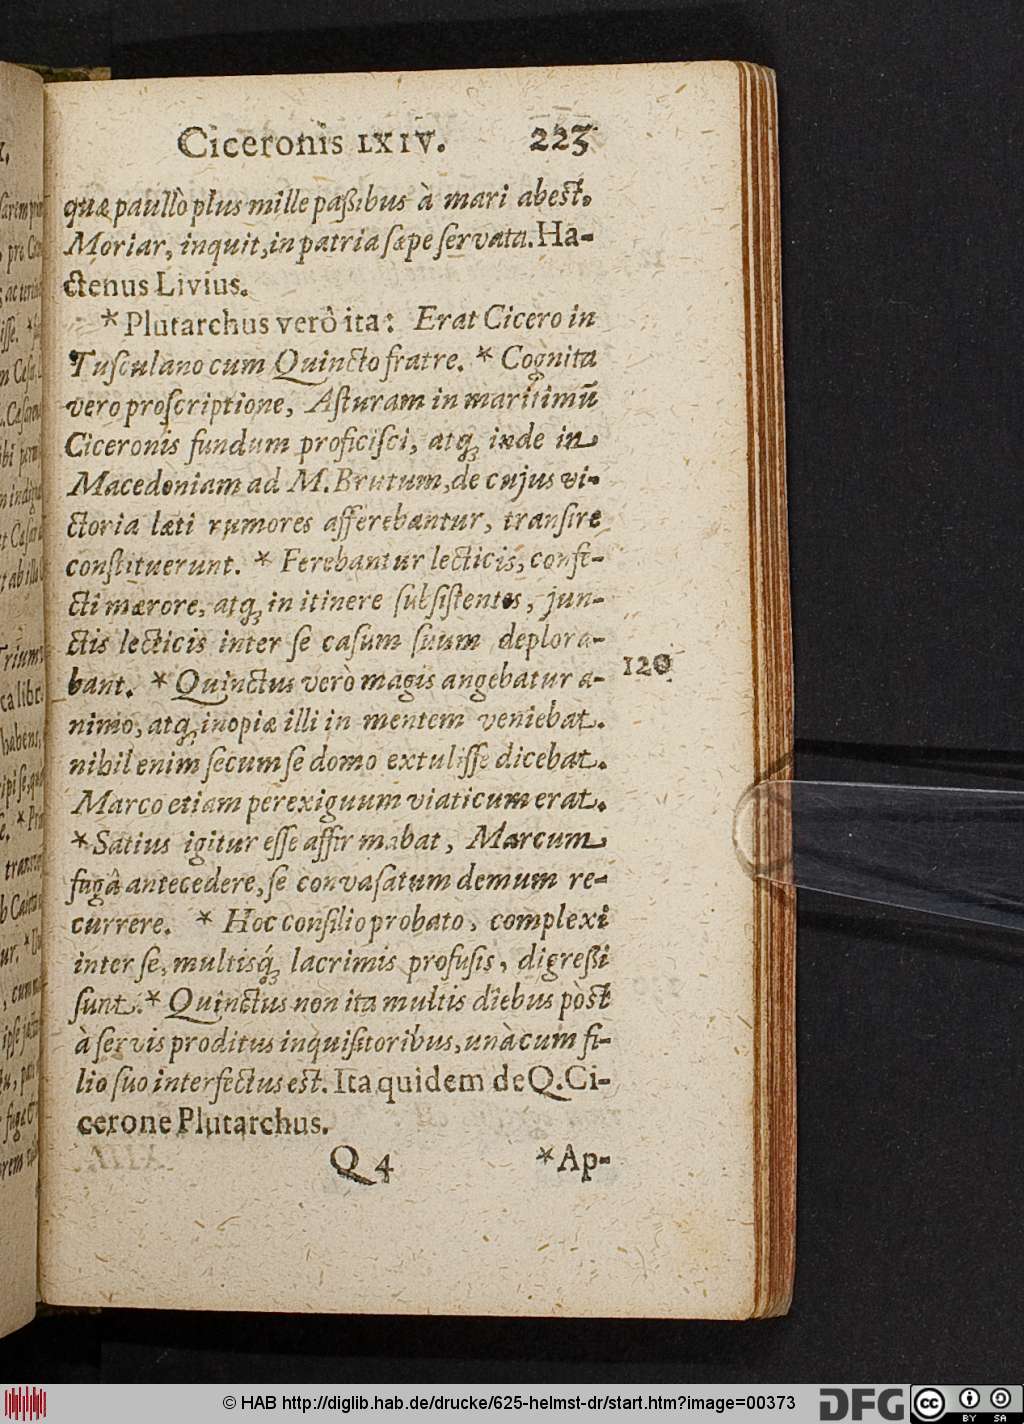 Ciceronis LXIV. 223
quæ paullò plus mille paßibus à mari abest.
Moriar, inquit, in patria sæpe servata. Ha-
ctenus Livius.
* Plutarchus verò ita: Erat Cicero in
Tusculano cum Quincto fratre. * Cognita
vero proscriptione, Asturam in maritimū
Ciceronis fundum proficisci, atq; inde in
Macedoniam ad M. Brutum, de cujus vi-
ctoria læti rumores afferebantur, transire
constituerunt. * Ferebantur lecticis, confe-
cti mærore, atq; in itinere subsistentes, jun-
ctis lecticis inter se casum suum deplora-
bant. * Quinctus verò magis angebatur a-
120
nimo, atq; inopiæ illi in mentem veniebat.
nihil enim secum se domo extulisse dicebat.
Marco etiam perexiguum viaticum erat.
* Satius igitur esse affirmabat, Marcum
fugâ antecedere, se convasatum demum re-
currere. * Hoc consilio probato, complexi
inter se, multisq́; lacrimis profusis, digreßi
sunt. * Quinctus non ita multis diebus pòst
à servis proditus inquisitoribus, unà cum fi-
lio suo interfectus est. Ita quidem de Q. Ci-
cerone Plutarchus.
Q 4 * Ap-
© HAB http://diglib.hab.de/drucke/625-helmst-dr/start.htm?image=00373
DFG cc BY SA